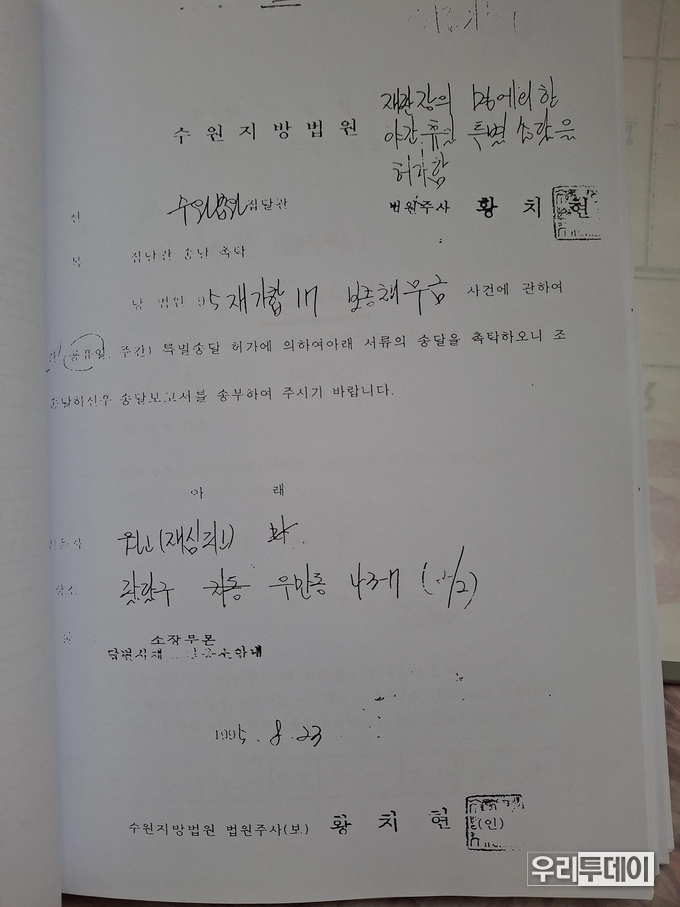 재판장의 명에의한
수 원 지 방 법 원 야간.휴일 특별 송달을
허가함
신 수원법원 집달관 법원주사 황 치 현
집달관 송달 촉탁
당 법원 95재가합 17 보증채무금 사건에 관하여
공휴일, 주간) 특별송달 허가에 의하여아래 서류의 송달을 촉탁하오니 조
송달하신후 송달보고서를 송부하여 주시기 바랍니다.
아 래
원고(재심피고)
우만동 43-17
소장부본
1995. 8. 23
수원지방법원 법원주사(보) 황 치 현 (인)
우리투데이